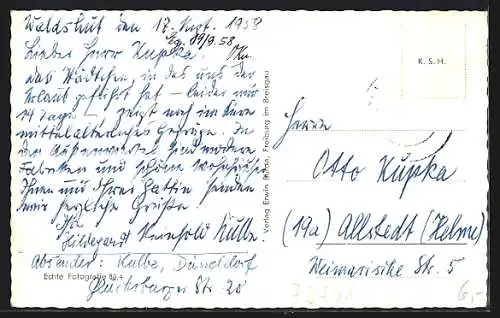 Waldshut den 17. Sept. 1958
Lieber Herr Kupka.
Das Städtchen, in das uns der
Urlaub geführt hat – leider nur
14 Tage – zeigt noch im Kern
mittelalterliches Gepräge. In
den Außenvierteln sind moderne
Fabriken und schöne Wohnhäuser
Ihnen und Ihrer Gattin senden
wir herzliche Grüße.
Ihre
Hildegard Reinhold Kulbe.
Absender: Kulbe, Düsseldorf
Glücksburger Str. 20
Echte Fotografie
Verlag Erwin Freiburg im Breisgau
K. S. H.
Herrn
Otto Kupka
(19a) Allstedt (Helme)
Weimarische Str. 5